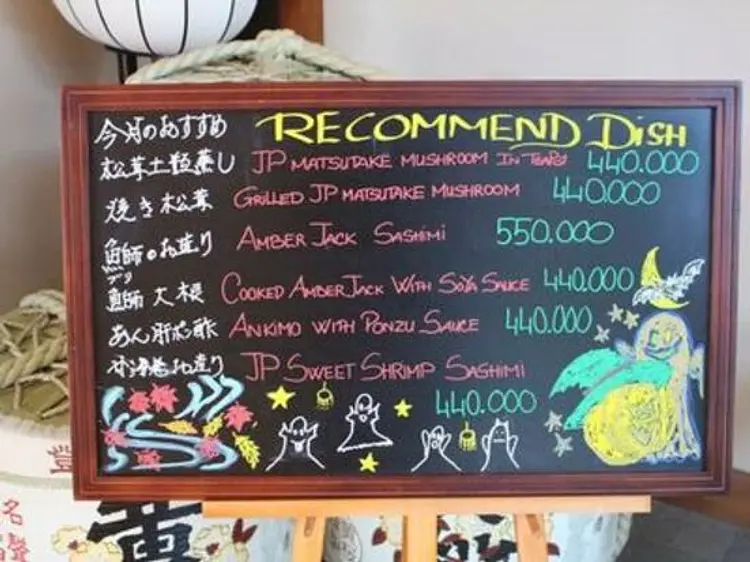 今月のおすすめ RECOMMEND DISH
松茸土瓶蒸し JP MATSUTAKE MUSHROOM IN 440.000
焼き松茸 GRILLED JP MATSUTAKE MUSHROOM 440.000
のお造り AMBER JACK SASHIMI 550.000
ブリ
大根 COOKED AMBER JACK WITH SOYA SAUCE 440.000
あん肝ポン酢 ANKIMO WITH PONZU SAUCE 440.000
甘海老お造り JP SWEET SHRIMP SASHIMI
440.000